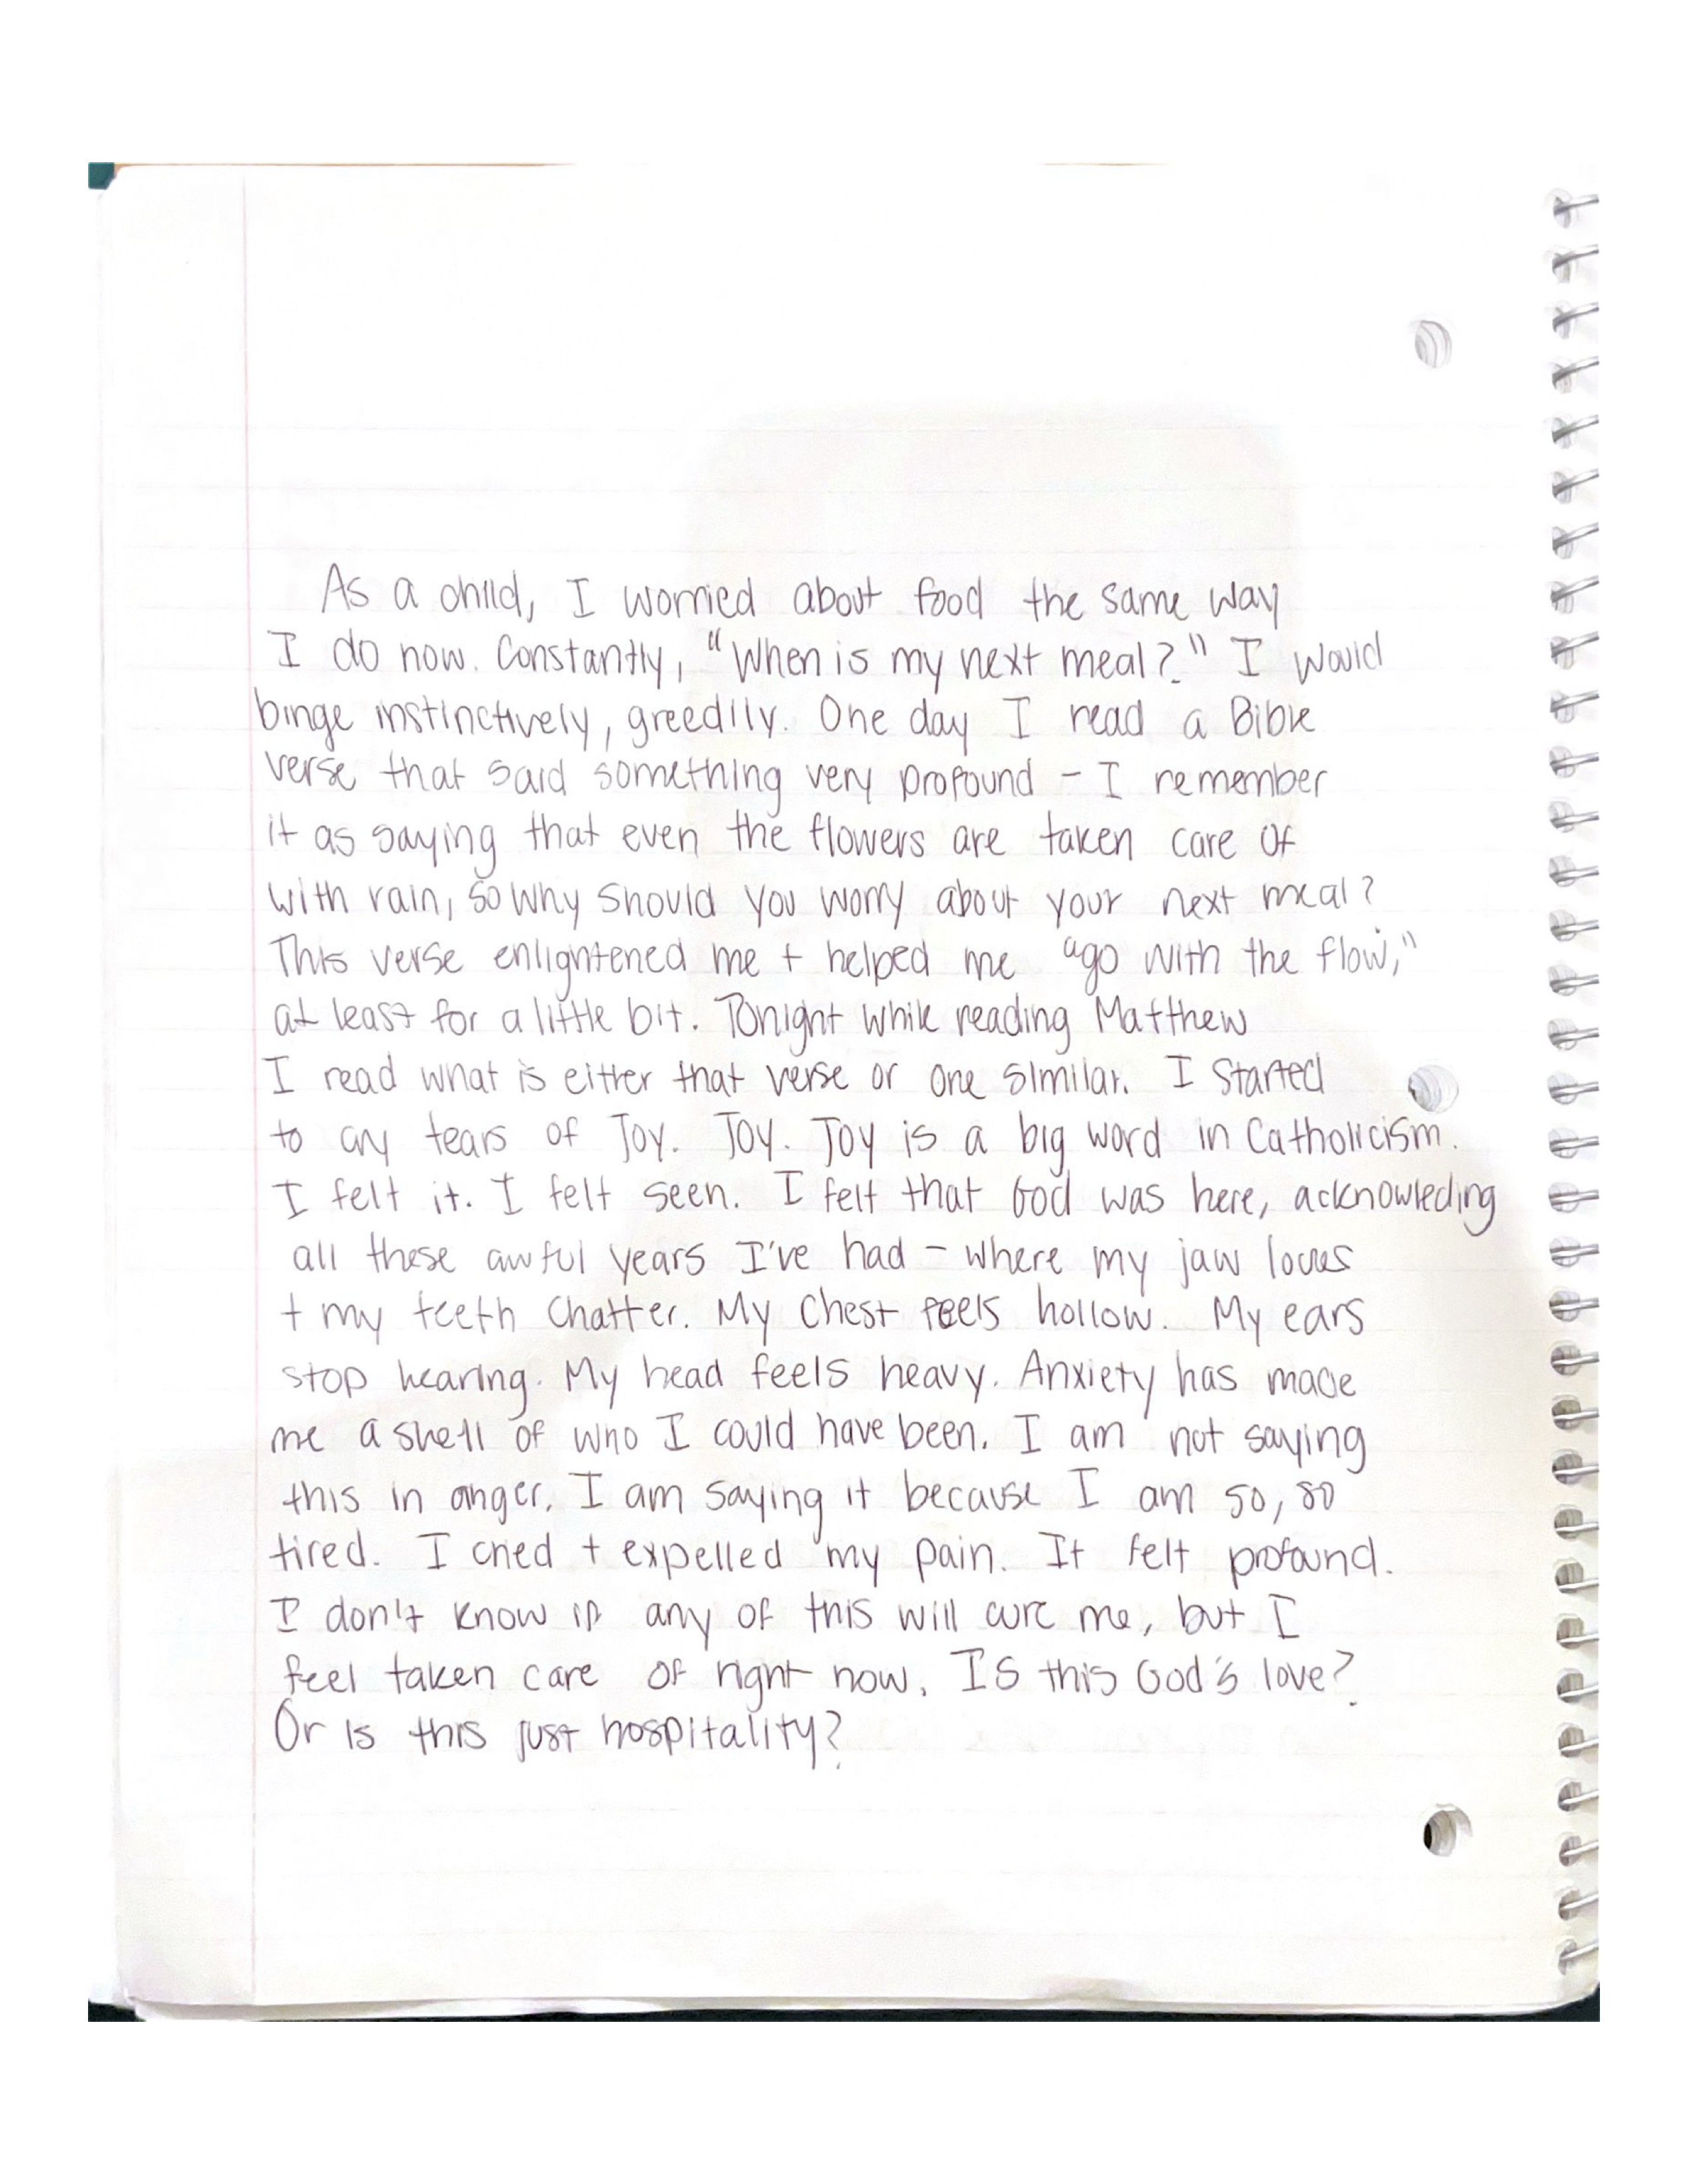 As a child, I worried about food the same way
I do now. Constantly, "When is my next meal?" I would
binge instinctively, greedily. One day I read a Bible
verse that said something very profound - I remember
it as saying that even the flowers are taken care of
with rain, so why should you worry about your next meal?
This verse enlightened me + helped me "go with the flow,"
at least for a little bit. Tonight while reading Matthew
I read what is either that verse or one similar. I started
to cry tears of Joy. Joy. Joy is a big word in Catholicism.
I felt it. I felt seen. I felt that God was here, acknowleding
all these awful years I've had - where my jaw locks
+ my teeth chatter. My chest feels hollow. My ears
stop hearing. My head feels heavy. Anxiety has made
me a shell of who I could have been. I am not saying
this in anger. I am saying it because I am so, so
tired. I cried + expelled my pain. It felt profound.
I don't know if any of this will cure me, but I
feel taken care of right now. Is this God's love?
Or is this just hospitality?